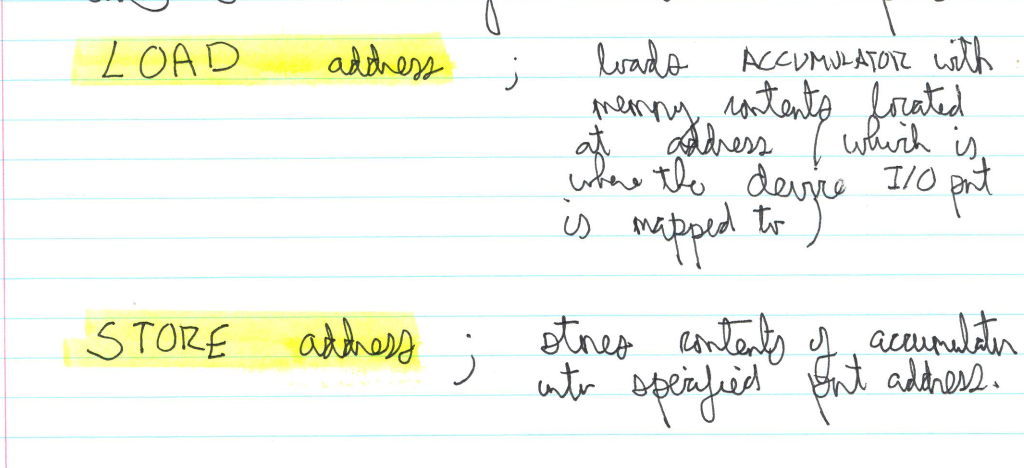 LOAD address ; loads ACCUMULATOR with
memory contents located
at address (which is
where the device I/O port
is mapped to)
STORE address ; stores contents of accumulator
into specified port address.